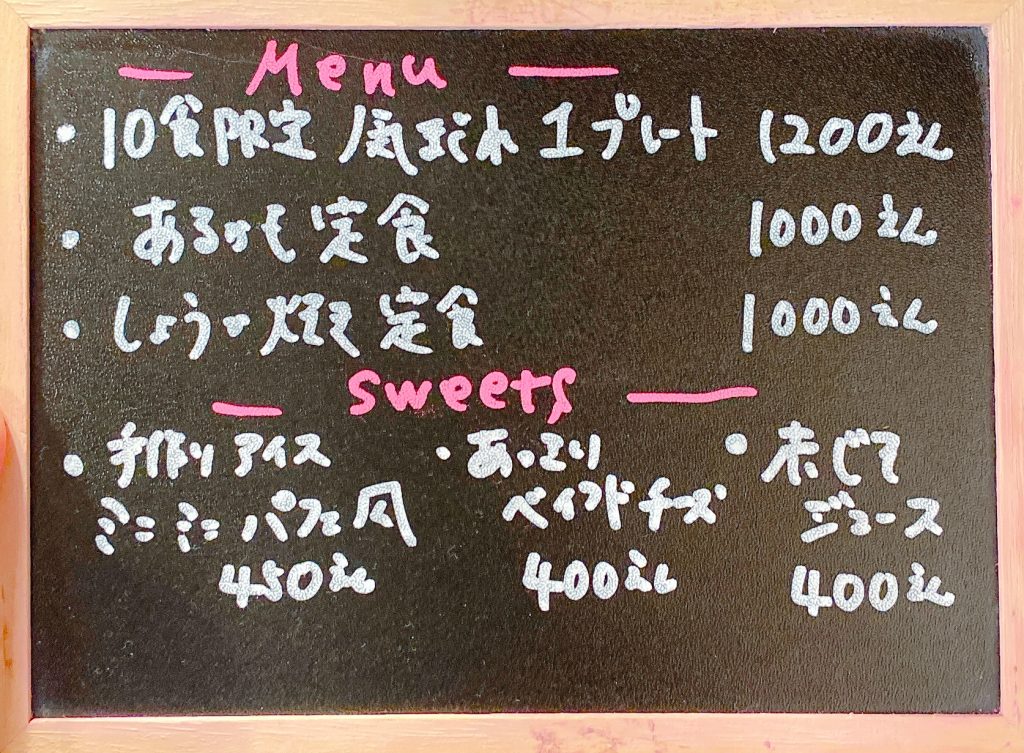 Menu
・10食限定 気まぐれ 1プレート 1200えん
・あるかも定食 1000えん
・しょうが焼き定食 1000えん
sweets
・手作りアイス
ミニミニパフェ風
450えん
・あっさり
ベイクドチーズ
400えん
・赤じそ
ジュース
400えん